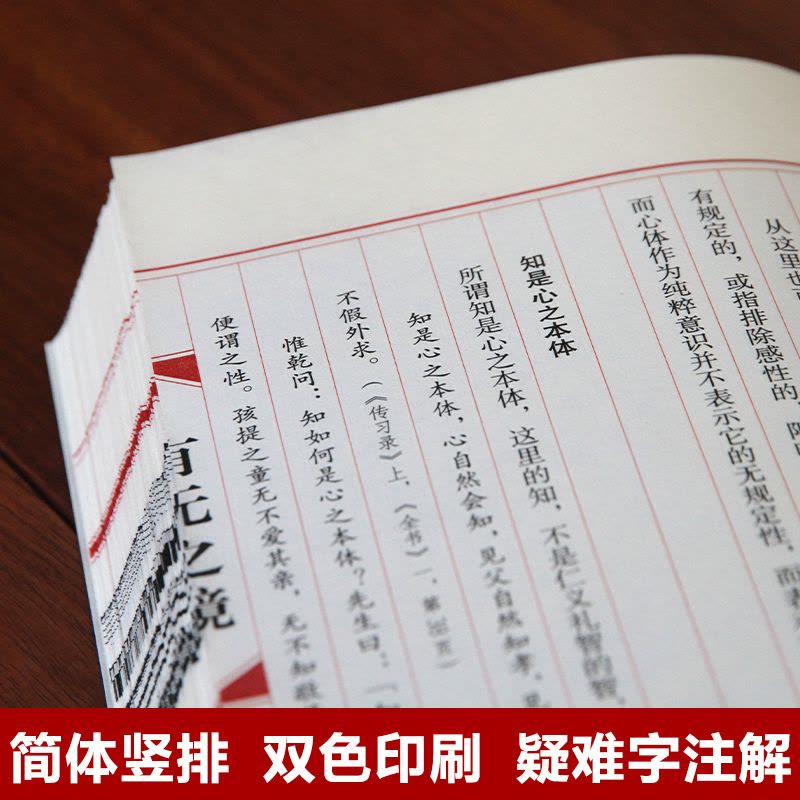 从这里也
有规定的，或指排除感性的
而心体作为纯粹意识并不表示它的无规定性，而
知是心之本体
所谓知是心之本体，这里的知，不是仁义礼智的智，
知是心之本体，心自然会知，见父自然知孝，见
不假外求。（《传习录》上，《全书》一，第 页）
惟乾问：知如何是心之本体？先生曰：「
便谓之性。孩提之童无不爱其亲，无不知敬
有无之境
简体竖排 双色印刷 疑难字注解